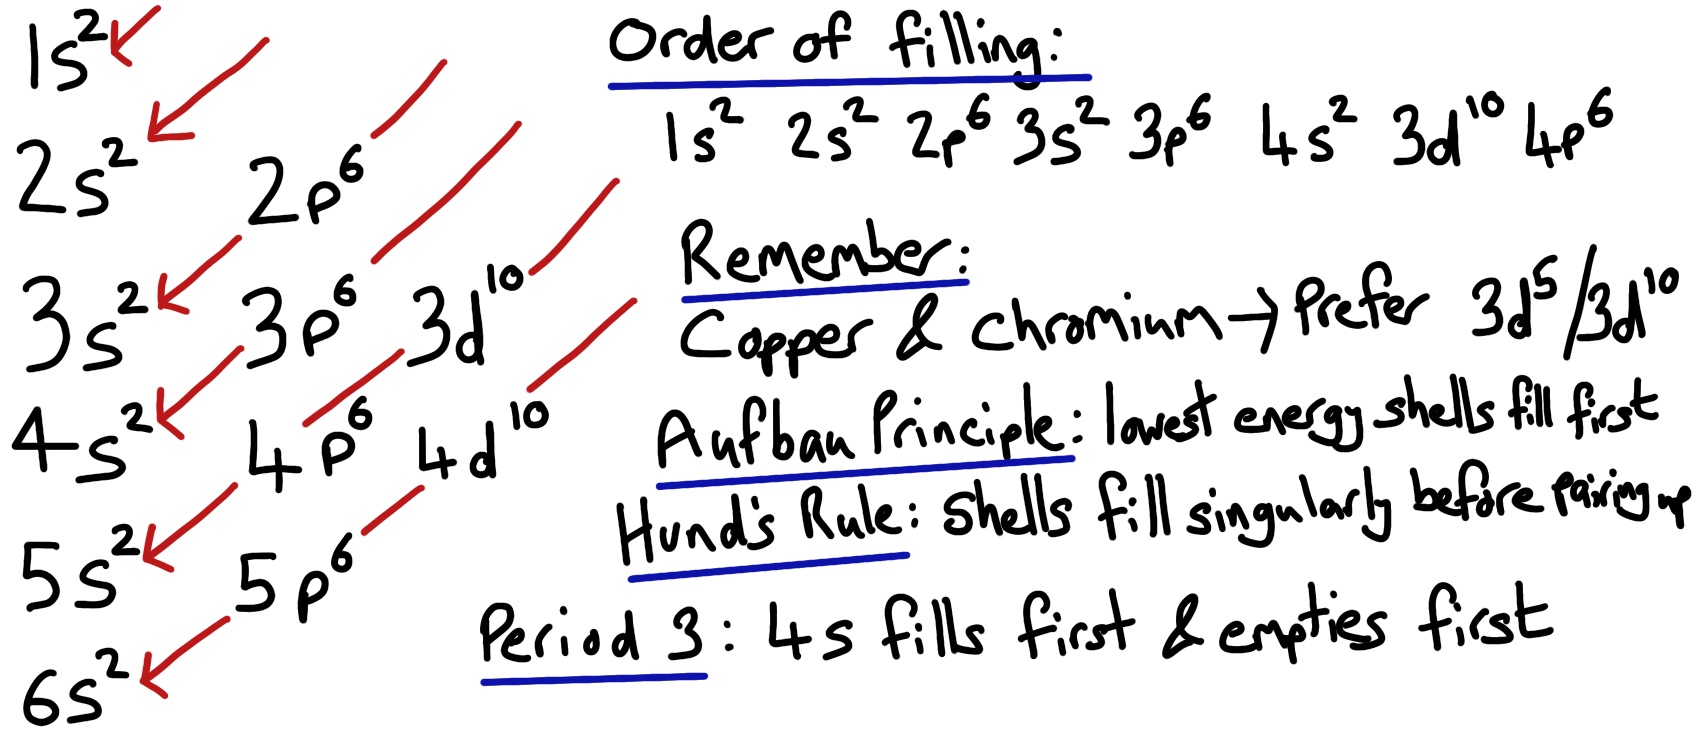 1s²
2s² 2p⁶
3s² 3p⁶ 3d¹⁰
4s² 4p⁶ 4d¹⁰
5s² 5p⁶
6s²
Order of filling:
1s² 2s² 2p⁶ 3s² 3p⁶ 4s² 3d¹⁰ 4p⁶
Remember:
Copper & chromium → Prefer 3d⁵/3d¹⁰
Aufbau Principle: lowest energy shells fill first
Hund's Rule: Shells fill singularly before pairing up
Period 3: 4s fills first & empties first